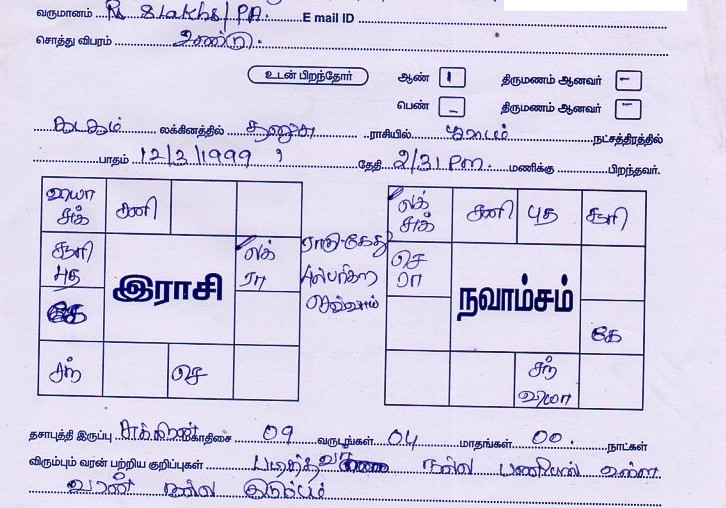 வருமானம் Rs 8 Lakhs/PA. E mail ID
சொத்து விபரம் உண்டு
உடன் பிறந்தோர் ஆண் 1 திருமணம் ஆனவர் –
பெண் – திருமணம் ஆனவர் –
கடகம் லக்கினத்தில் தனுசு ராசியில் பூராடம் நட்சத்திரத்தில்
பாதம் 12/3/1999 தேதி 2/31 Pm. மணிக்கு பிறந்தவர்.
வியா சுக் சனி
லக் சுக் சனி புத சூரி
சூரி புத இராசி லக் ரா
ராகு-கேது பரிகார செவ்வாய்
செ ரா நவாம்சம்
கே
சந் செ
சந் வியா
தசாபுத்தி இருப்பு சுக்கிரன் மகாதிசை 09 வருடங்கள் 04 மாதங்கள் 00. நாட்கள்
விரும்பும் வரன் பற்றிய குறிப்புகள் படித்த நல்ல பணியில் உள்ள
வரன் நல்ல குடும்பம்